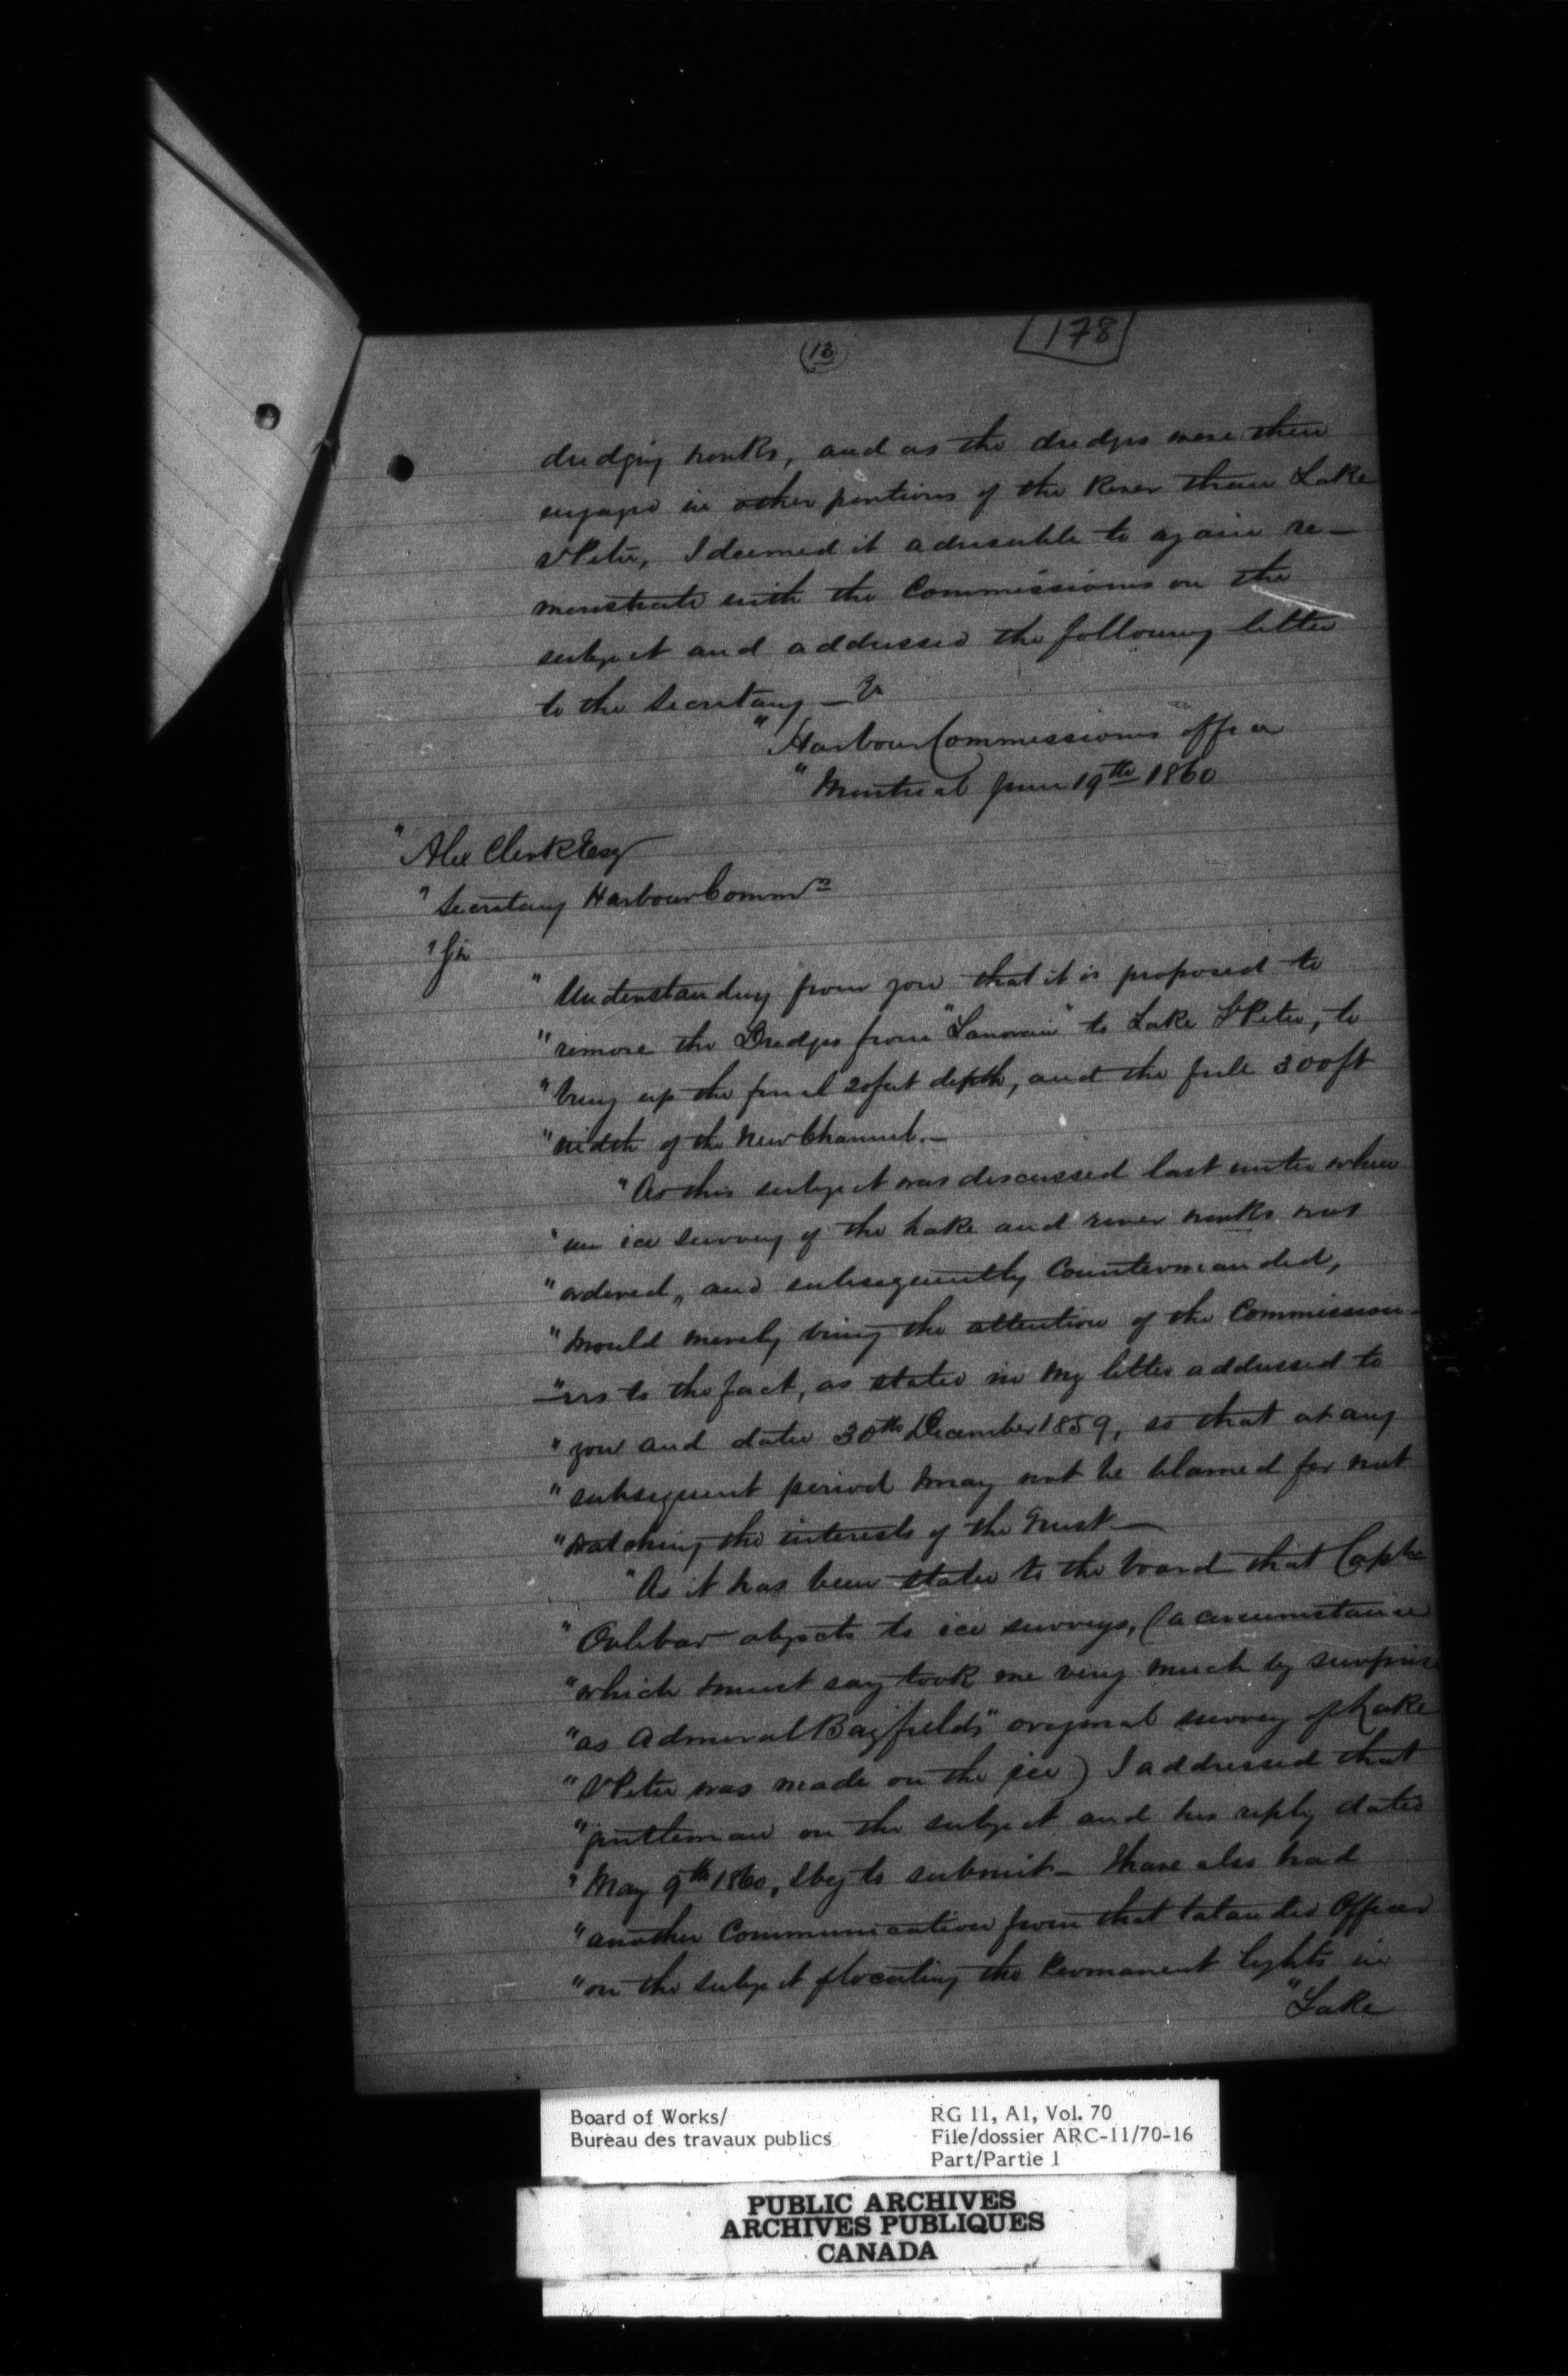 178
(13)
dredging works, and as the dredges were then
engaged in other portions of the River than Lake
St Peter, I deemed it advisable to again re-
monstrate with the Commissioners on the
subject and addressed the following letter
to the Secretary —
" Harbour Commissioners office
" Montreal June 19th 1860
" Alex Clerk Esq
" Secretary Harbour Commrs
" Sir
" Understanding from you that it is proposed to
" remove the Dredges from "Lanoraie" to Lake St Peter, to
" bring up the final 20 feet depth, and the full 300 ft
" width of the New Channel.—
" As this subject was discussed last winter when
" an ice survey of the Lake and river works was
" ordered, and subsequently Countermanded,
" I would merely bring the attention of the Commission-
" -ers to the fact, as stated in my letter addressed to
" you and dated 30th December 1859, so that at any
" subsequent period I may not be blamed for not
" watching the interests of the Trust —
" As it has been stated to the board that Captn
" Orlebar objects to ice surveys, (a circumstance
" which I must say took me very much by surprise
" as Admiral Bayfield's" original survey of Lake
" St Peter was made on the ice) I addressed that
" gentleman on the subject and his reply dated
" May 9th 1860, I beg to submit — I have also had
" another Communication from that talented Officer
" on the subject of locating the Permanent lights in
" Lake
Board of Works/
Bureau des travaux publics
RG 11, A1, Vol. 70
File/dossier ARC-11/70-16
Part/Partie 1
PUBLIC ARCHIVES
ARCHIVES PUBLIQUES
CANADA